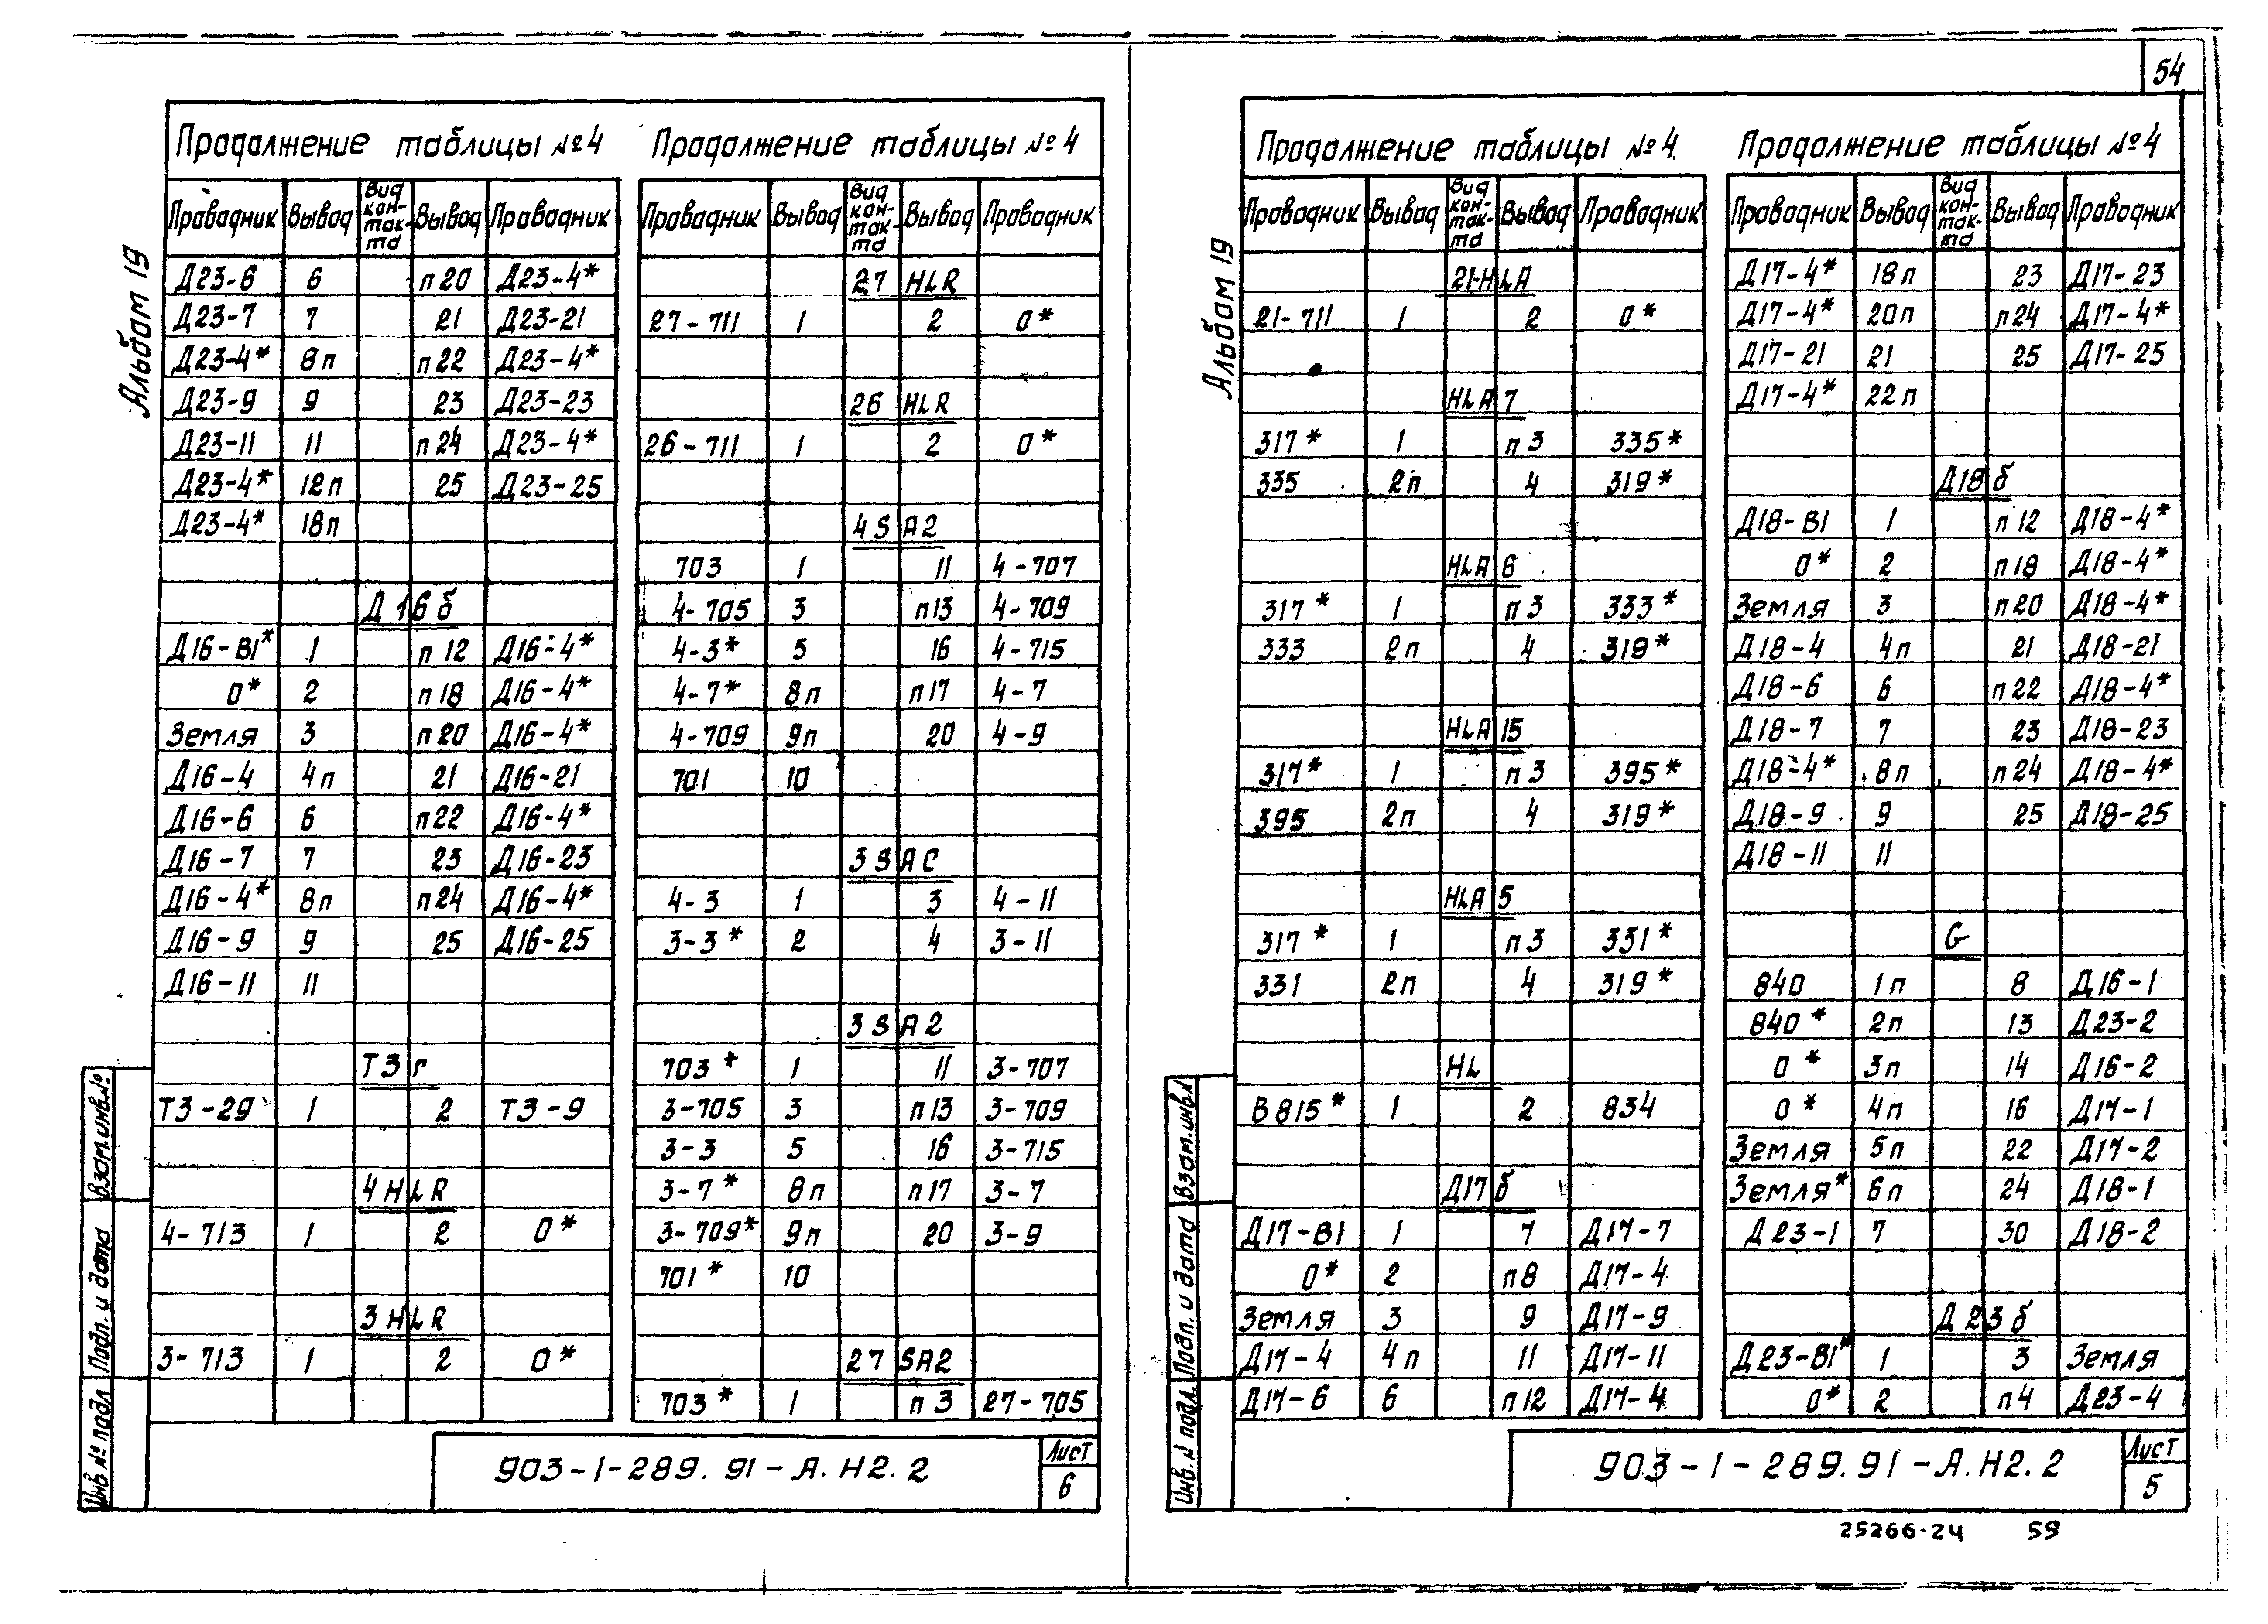 54
Альбом 19
Продолжение таблицы №4 Продолжение таблицы №4
Проводник Вывод Вид контакта Вывод Проводник Проводник Вывод Вид контакта Вывод Проводник
Д23-6 6 п20 Д23-4* 27 HLR
Д23-7 7 21 Д23-21 27-711 1 2 0*
Д23-4* 8п п22 Д23-4*
Д23-9 9 23 Д23-23 26 HLR
Д23-11 11 п24 Д23-4* 26-711 1 2 0*
Д23-4* 12п 25 Д23-25
Д23-4* 18п 4SA2
703 1 11 4-707
Д16б 4-705 3 п13 4-709
Д16-В1* 1 п12 Д16-4* 4-3* 5 16 4-715
0* 2 п18 Д16-4* 4-7* 8п п17 4-7
Земля 3 п20 Д16-4* 4-709 9п 20 4-9
Д16-4 4п 21 Д16-21 701 10
Д16-6 6 п22 Д16-4*
Д16-7 7 23 Д16-23 3SAC
Д16-4* 8п п24 Д16-4* 4-3 1 3 4-11
Д16-9 9 25 Д16-25 3-3* 2 4 3-11
Д16-11 11
3SA2
Т3г 703* 1 11 3-707
Т3-29 1 2 Т3-9 3-705 3 п13 3-709
3-3 5 16 3-715
4HLR 3-7* 8п п17 3-7
4-713 1 2 0* 3-709* 9п 20 3-9
701* 10
3HLR
3-713 1 2 0* 27SA2
703* 1 п3 27-705
Взам.инв.№
Подп. и дата
Инв № подл
903-1-289.91-А.Н2.2
Лист
6
Альбом 19
Продолжение таблицы №4 Продолжение таблицы №4
Проводник Вывод Вид контакта Вывод Проводник Проводник Вывод Вид контакта Вывод Проводник
21-HLA Д17-4* 18п 23 Д17-23
21-711 1 2 0* Д17-4* 20п п24 Д17-4*
Д17-21 21 25 Д17-25
HLA7 Д17-4* 22п
317* 1 п3 335*
335 2п 4 319* Д18б
Д18-В1 1 п12 Д18-4*
HLA6 0* 2 п18 Д18-4*
317* 1 п3 333* Земля 3 п20 Д18-4*
333 2п 4 319* Д18-4 4п 21 Д18-21
Д18-6 6 п22 Д18-4*
HLA15 Д18-7 7 23 Д18-23
317* 1 п3 395* Д18-4* 8п п24 Д18-4*
395 2п 4 319* Д18-9 9 25 Д18-25
Д18-11 11
HLA5
317* 1 п3 331* G
331 2п 4 319* 840 1п 8 Д16-1
840* 2п 13 Д23-2
HL 0* 3п 14 Д16-2
В815* 1 2 834 0* 4п 16 Д17-1
Земля 5п 22 Д17-2
Д17б Земля* 6п 24 Д18-1
Д17-В1 1 7 Д17-7 Д23-1 7 30 Д18-2
0* 2 п8 Д17-4
Земля 3 9 Д17-9 Д23б
Д17-4 4п 11 Д17-11 Д23-В1* 1 3 Земля
Д17-6 6 п12 Д17-4 0* 2 п4 Д23-4
Взам.инв.№
Подп. и дата
Инв.№ подл.
903-1-289.91-А.Н2.2
Лист
5
25266-24 59